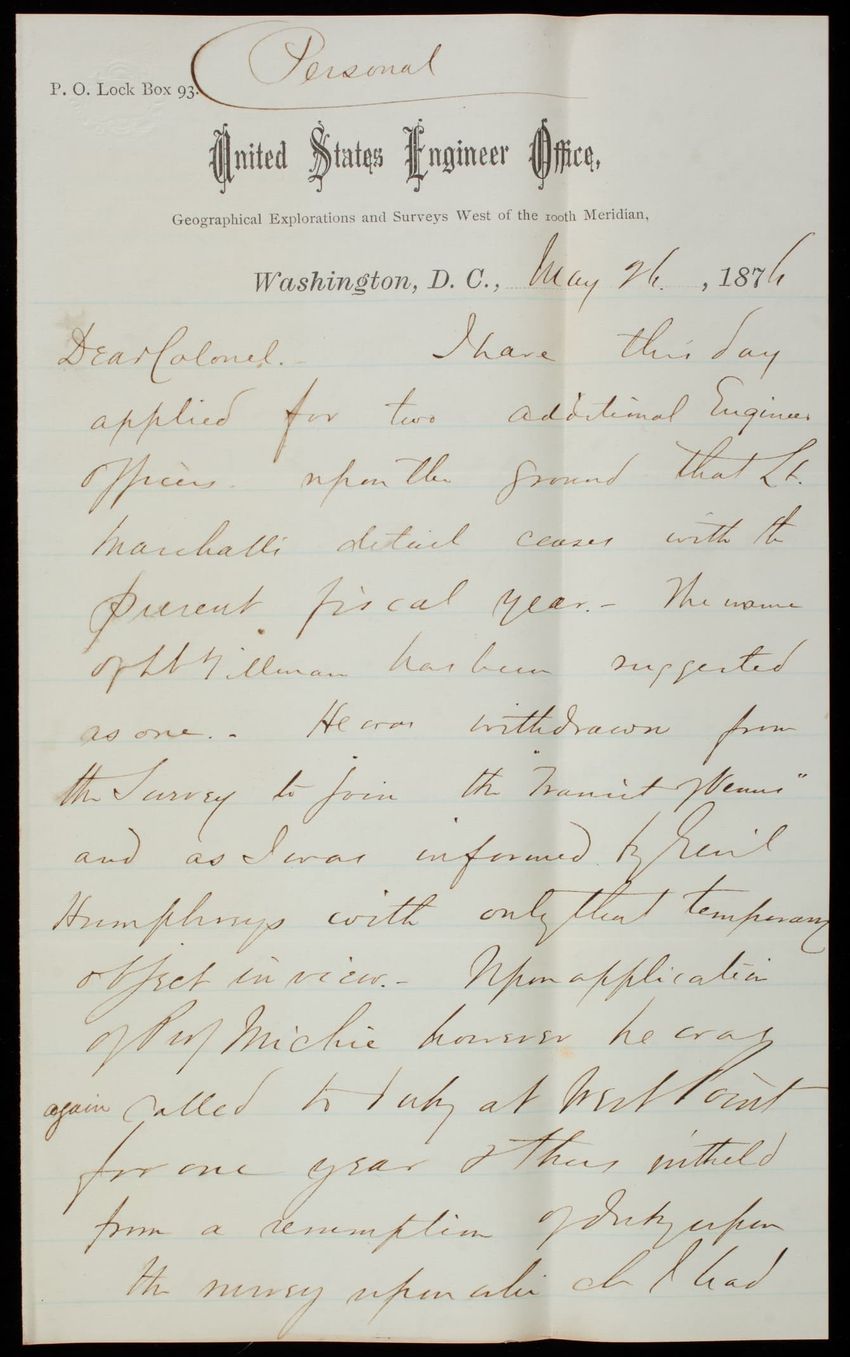 Personal
P. O. Lock Box 93.
United States Engineer Office,
Geographical Explorations and Surveys West of the 100th Meridian,
Washington, D. C., May 26. , 1876
Dear Colonel. I have this day
applied for two additional Engineer
officers upon the ground that Lt.
Marshall's detail ceases with the
present fiscal year. - The name
of Lt Tillman has been suggested
as one. - He was withdrawn from
the Survey to join the "Transit of Venus"
and as I was informed by Genl
Humphreys with only that temporary
object in view. - Upon application
of Prof Michie however he was
again called to duty at West Point
for one year & thus witheld
from a resumption of duty upon
the survey upon which I had